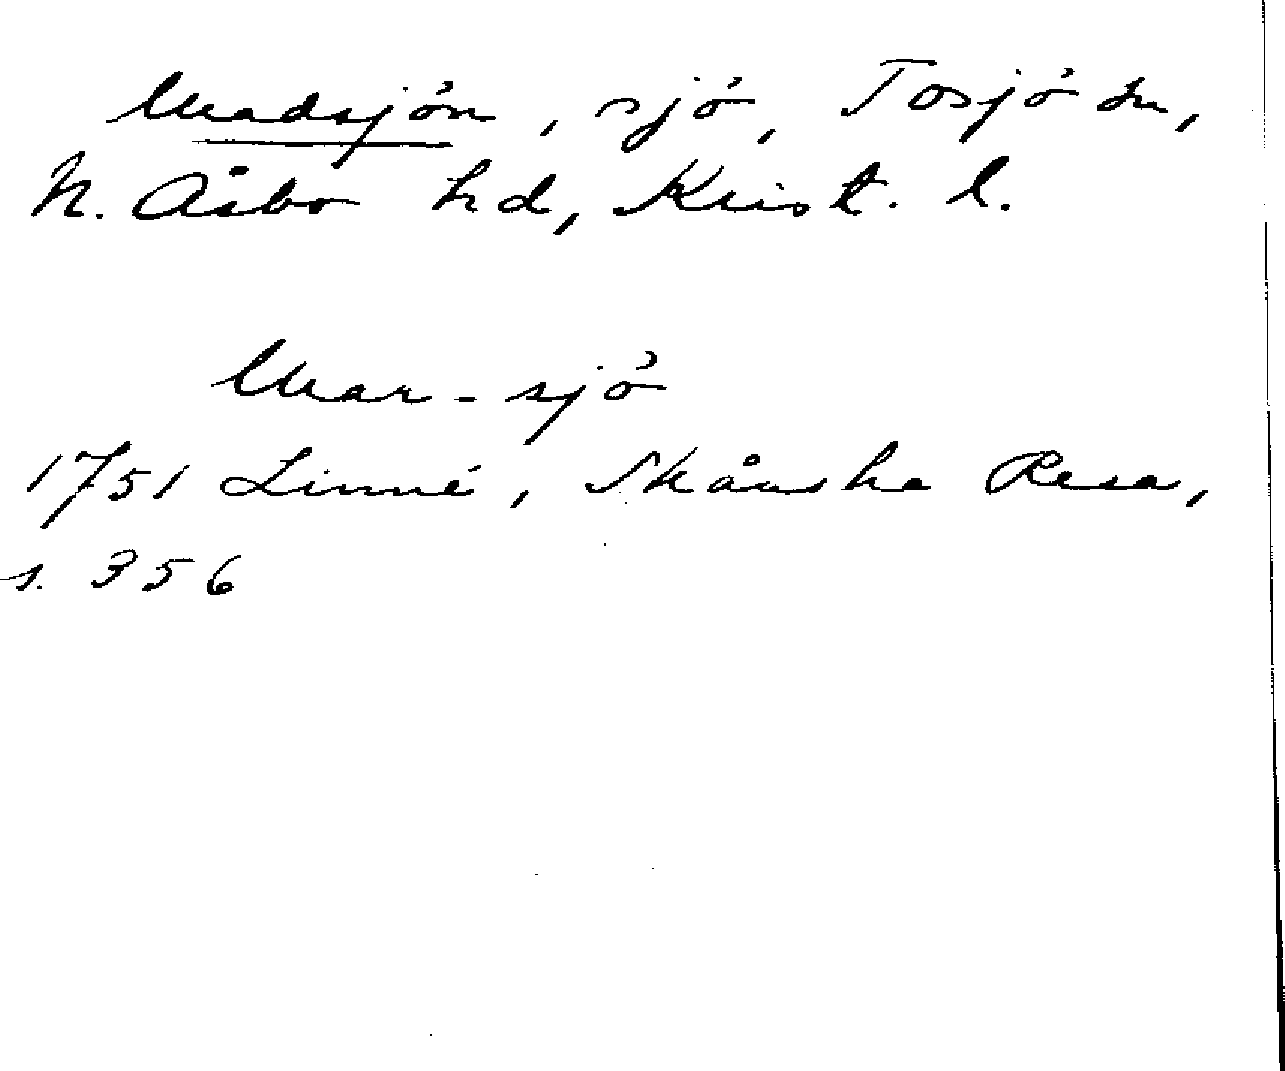 Madsjön, sjö, Tosjö sn,
N. Åsbo hd, Krist. l.
Mar-sjö
1751 Linné, Skånska Resa,
s. 356